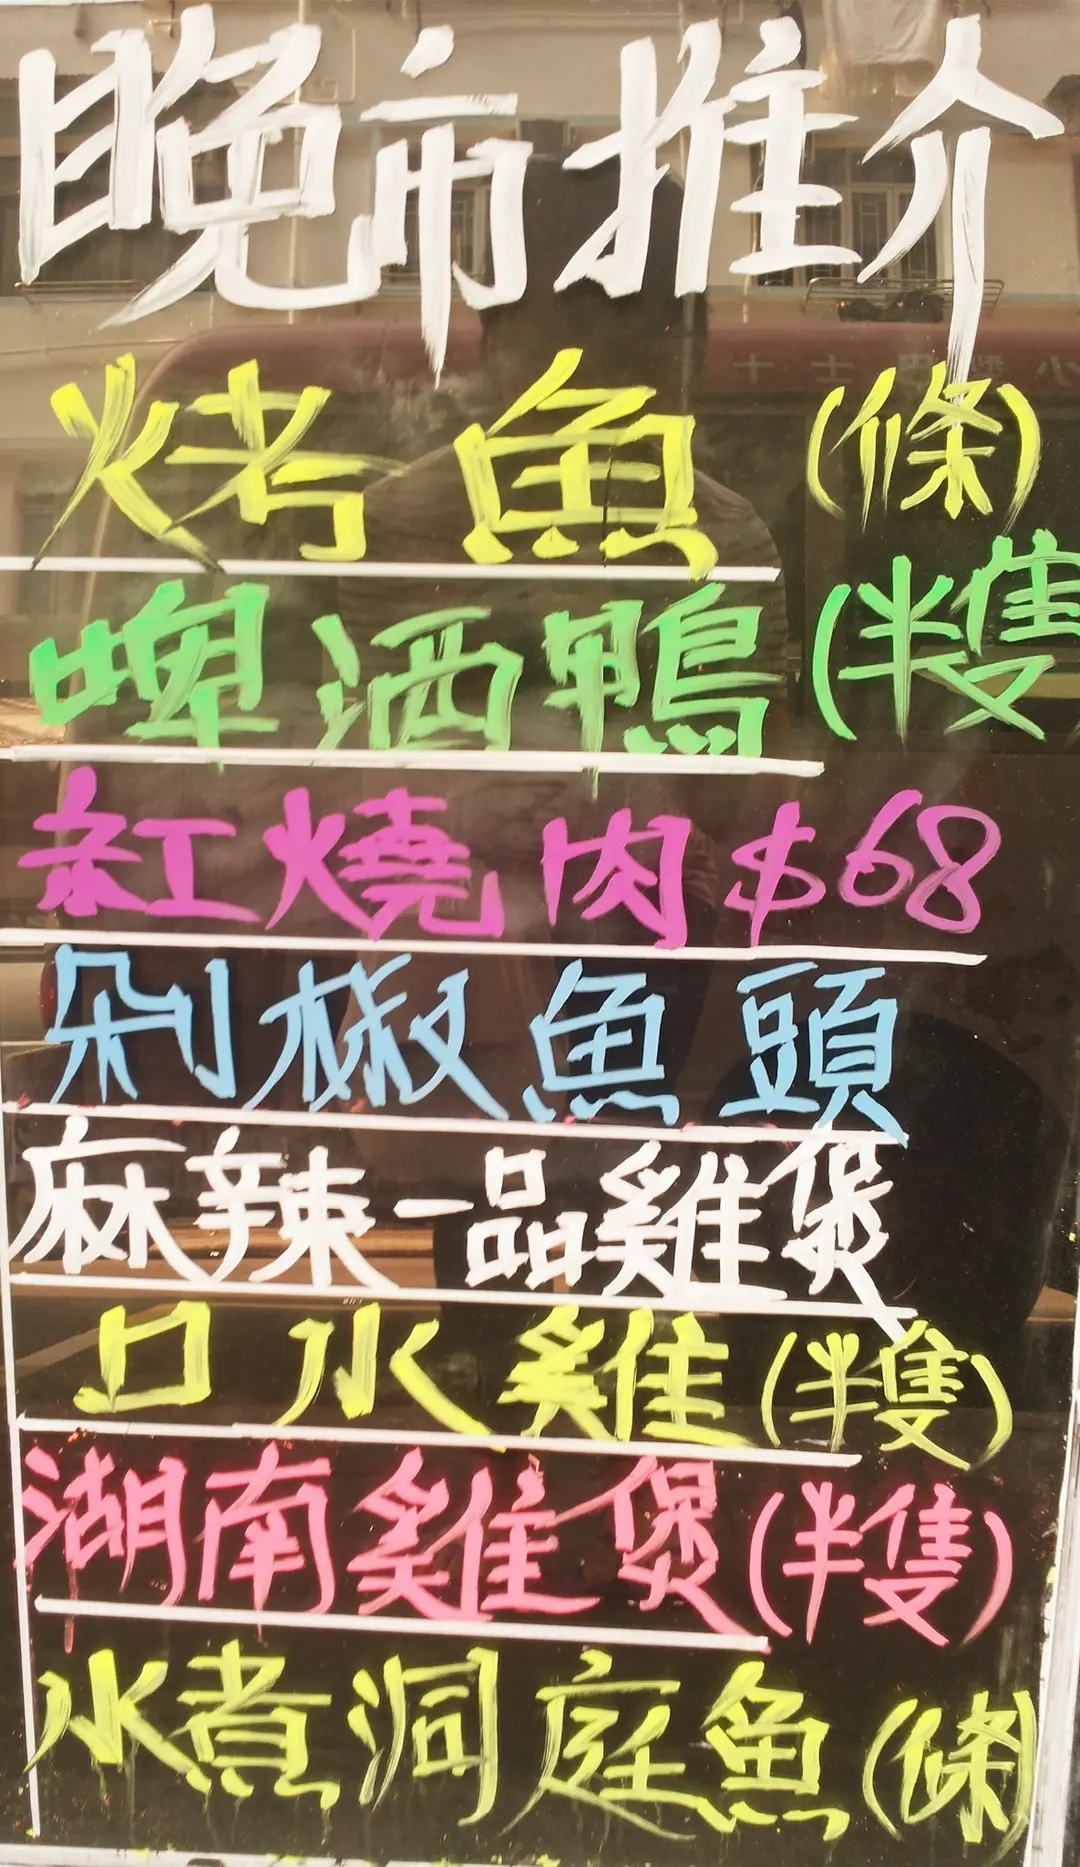 晚市推介
烤魚(條)
啤酒鴨(半隻
紅燒肉$68
剁椒魚頭
麻辣一品雞煲
口水雞(半隻)
湖南雞煲(半隻)
水煮洞庭魚(條)